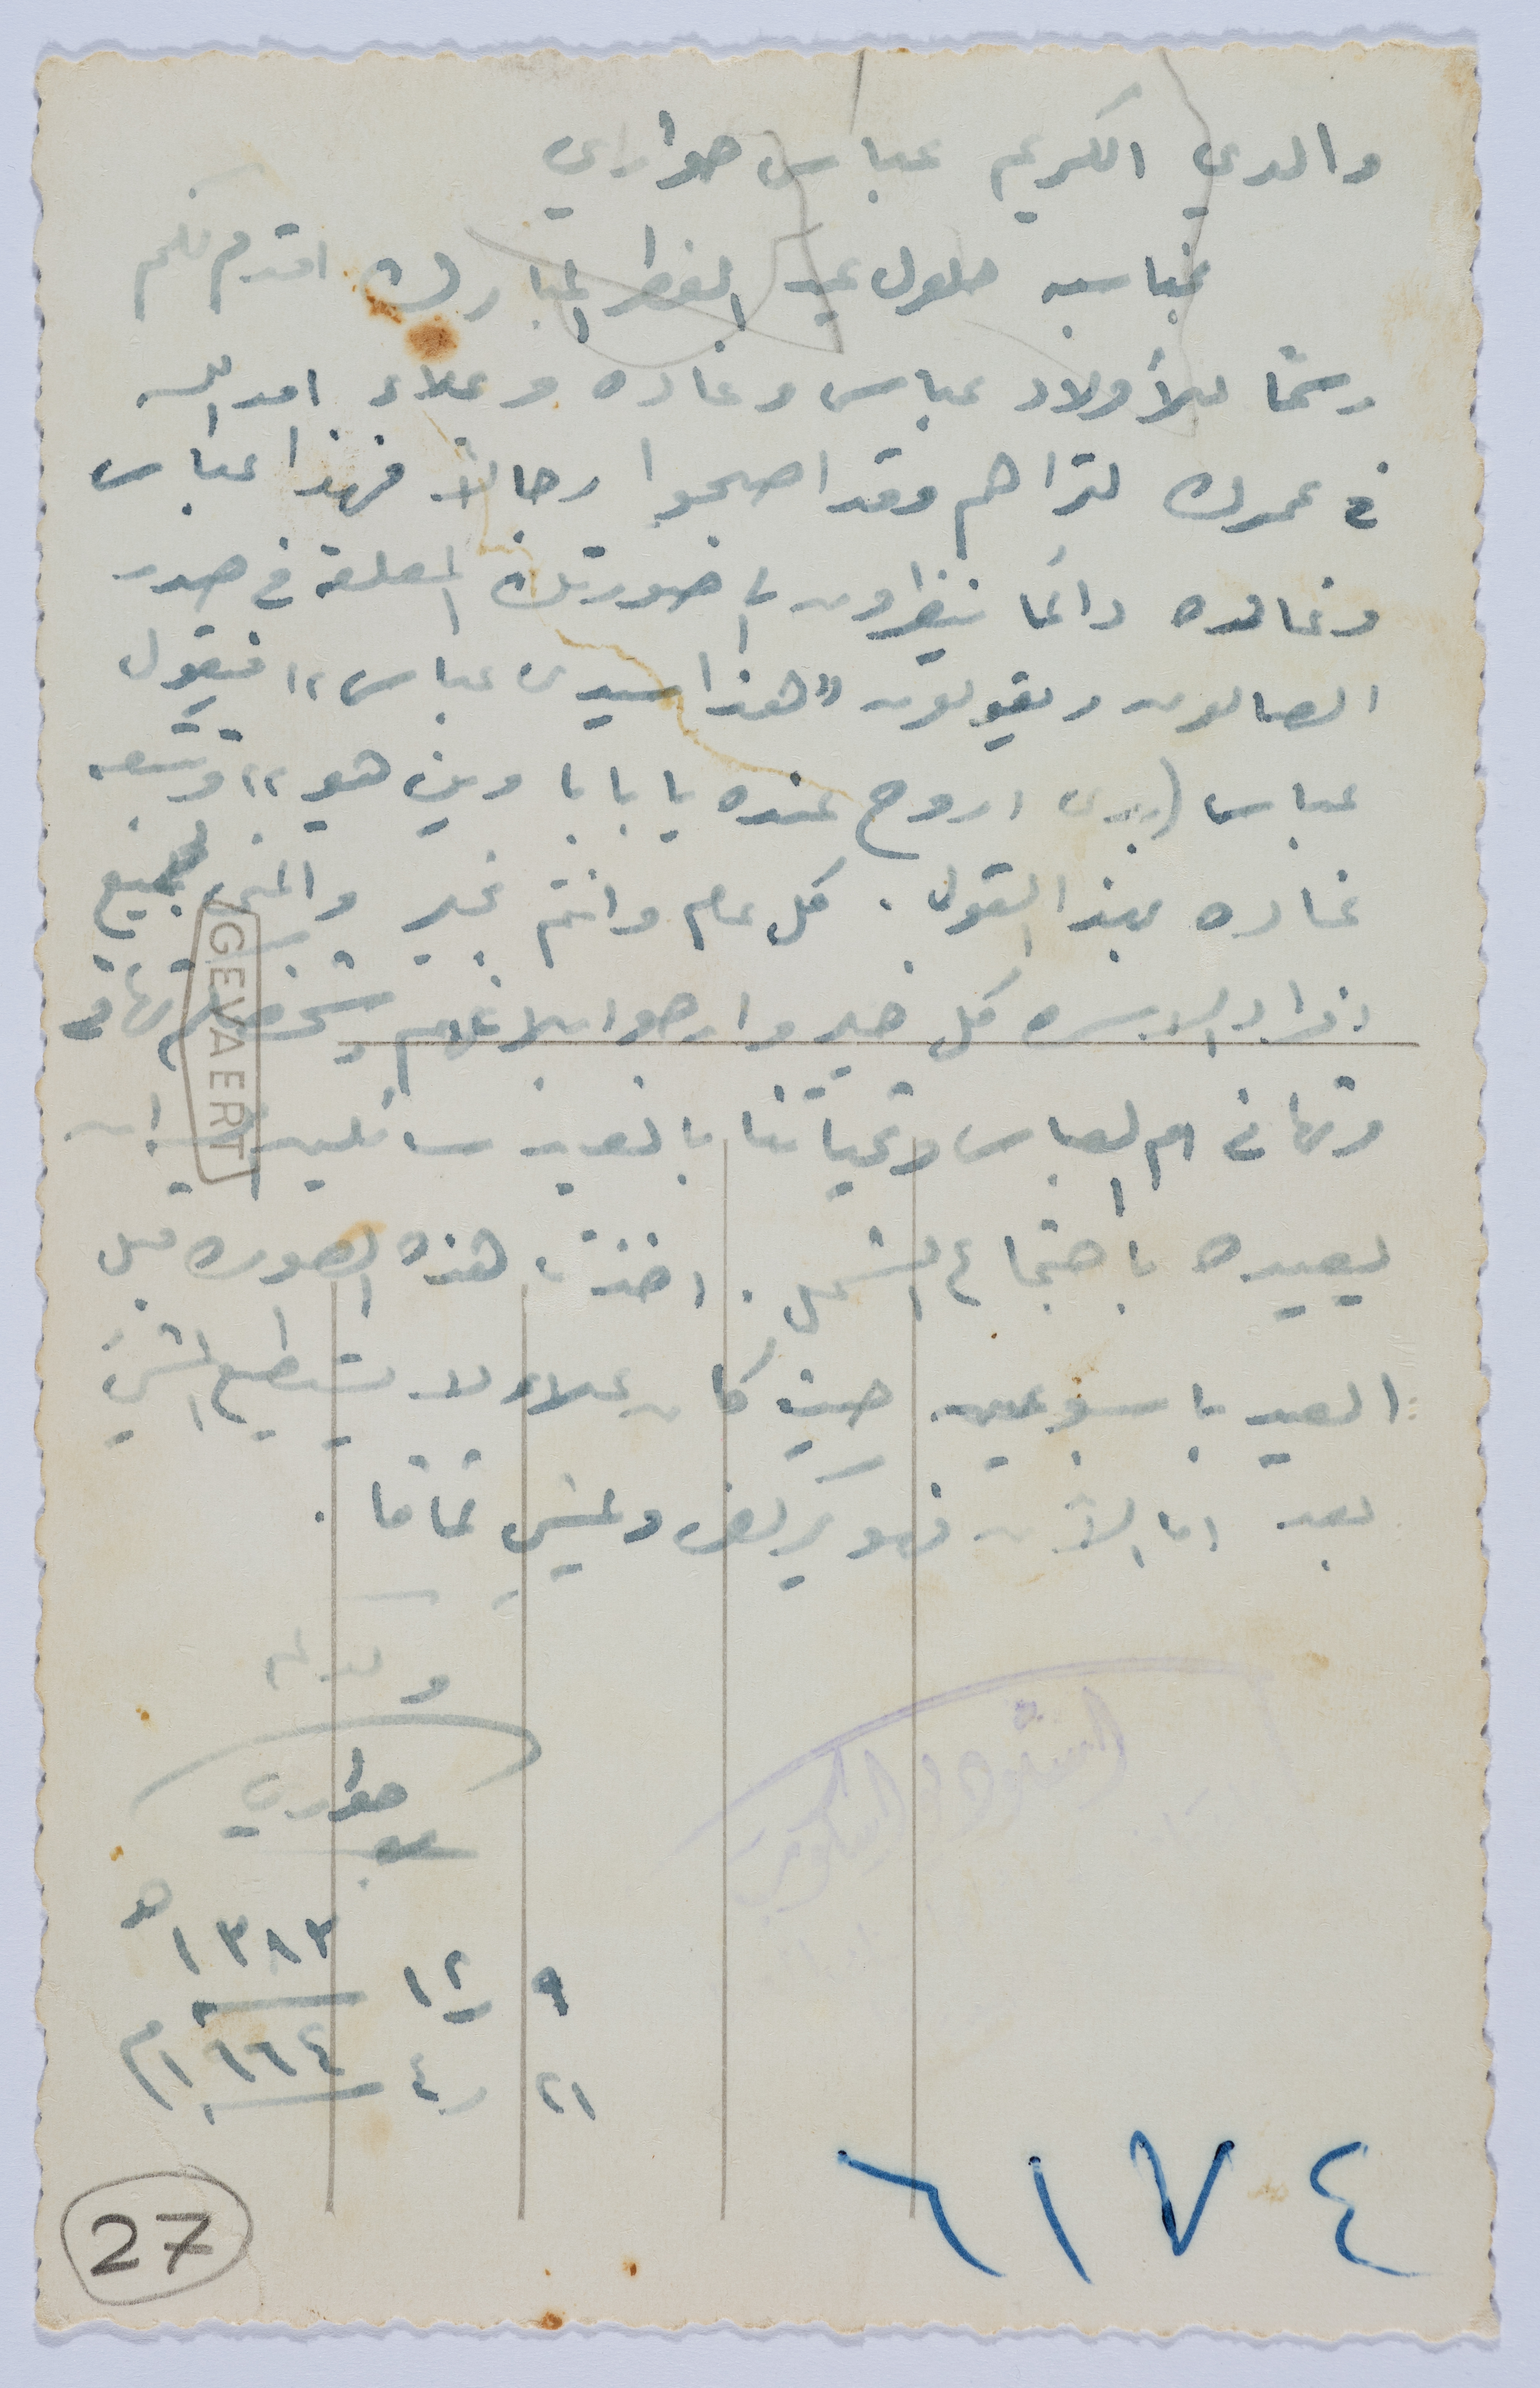 والدي الكريم عباس حواري
بمناسبه حلول عيد الفطر المبارك اقدم لكم
رسمًا للأولاد عباس وغاده وعلاء امد الله
في عمرك لتراهم وقد اصبحوا رجالاً فهذا عباس
وغاده دائمًا ينظرون الى صورتك المعلقة في صدر
الصالون ويقولون "هذا سيدي عباس" فيقول
عباس (بدي اروح عنده يا بابا وين هو" وتتبعه
غاده بهذا القول. كل عام وانتم بخير والمنى لجميع
افراد الاسره كل خير وارجو ابلاغهم
وتهاني ام العباس وتحياتنا بالعيد سائلين الله ان
يعيده باجتماع الشمل. اخذت هذه الصوره قبل
العيد باسبوعين حيث كان علاء لا يستطيع المشي
بعد اما الآن فهو يركض ويمشي تمامًا.
ولدكم
حواري
٩ ١٢ ١٣٨٣ هـ
٢١ ٤ ١٩٦٤م
٦١٧٤
27
GEVAERT